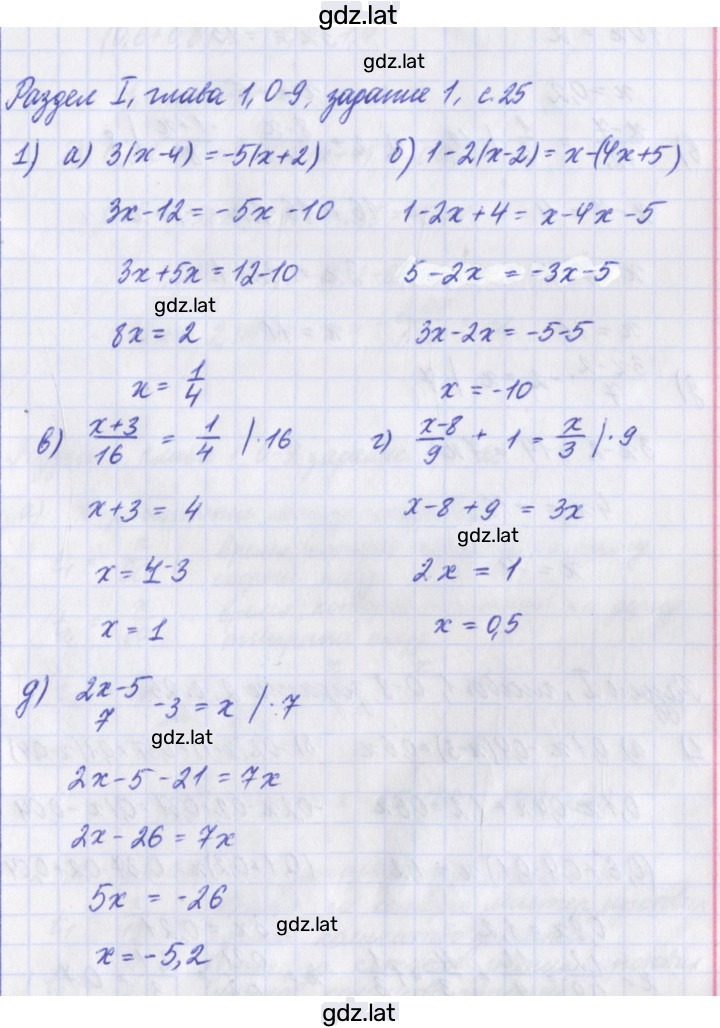 gdz.lat
gdz.lat
Раздел I, глава 1, О-9, задание 1, с.25
1) а) 3(x-4) = -5(x+2) б) 1-2(x-2) = x-(4x+5)
3x-12 = -5x-10 1-2x+4 = x-4x-5
3x+5x = 12-10 5-2x = -3x-5
gdz.lat
8x = 2 3x-2x = -5-5
x = 1/4 x = -10
в) (x+3)/16 = 1/4 |·16 г) (x-8)/9 + 1 = x/3 |·9
x+3 = 4 x-8+9 = 3x
gdz.lat
x = 4-3 2x = 1
x = 1 x = 0,5
д) (2x-5)/7 - 3 = x |·7
gdz.lat
2x-5-21 = 7x
2x-26 = 7x
5x = -26
gdz.lat
x = -5,2
gdz.lat